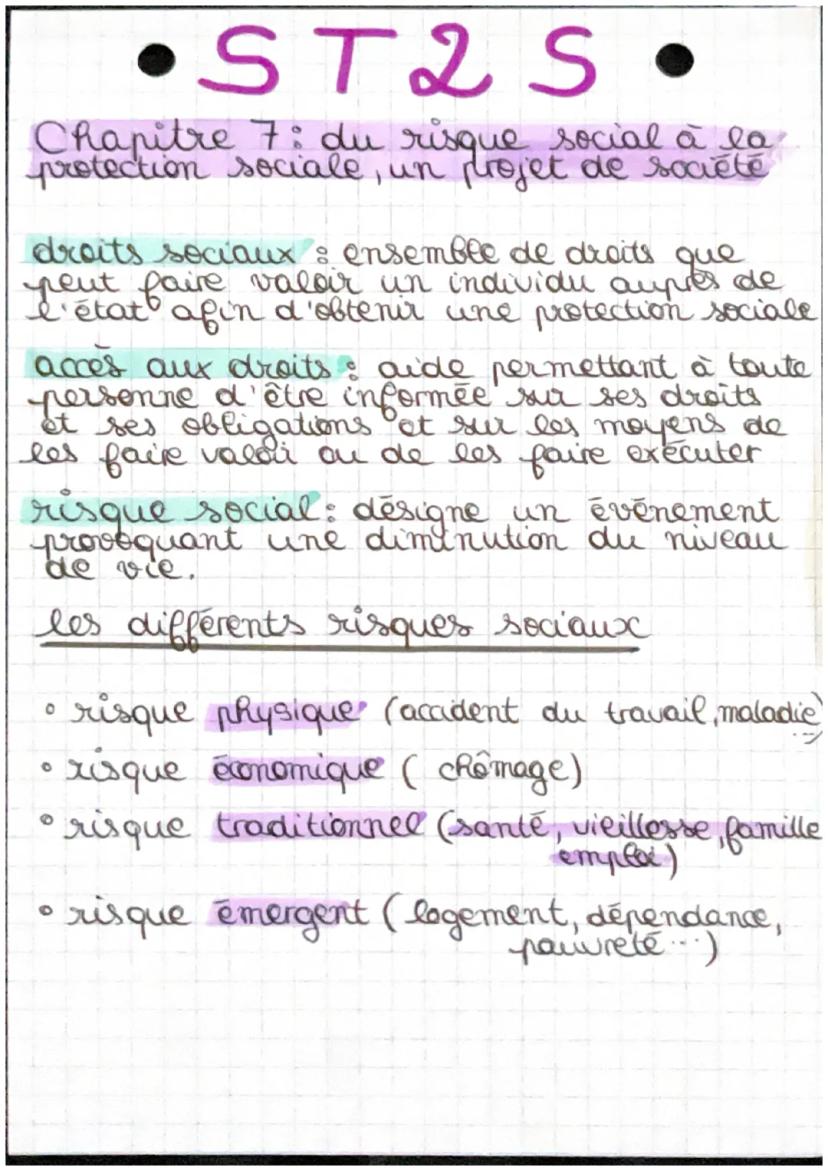 ST2S
Chapitre 7 : du risque social à la
protection sociale, un projet de société
droits sociaux : ensemble de droits que
peut faire valoir un individu auprès de
l'état afin d'obtenir une protection sociale
accès aux droits : aide permettant à toute
personne d'être informée sur ses droits
et ses obligations et sur les moyens de
les faire valoir ou de les faire exécuter
risque social : désigne un évènement
provoquant une diminution du niveau
de vie.
les différents risques sociaux
• risque physique (accident du travail, maladie)
• risque économique ( chômage)
• risque traditionnel (santé, vieillesse, famille
emploi)
• risque émergent ( logement, dépendance,
pauvreté...)